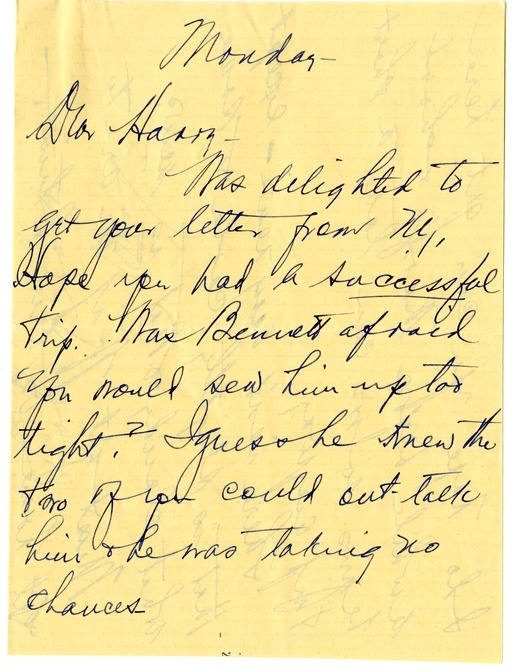 Monday-
Dear Harry-
Was delighted to
get your letter from NY,
Hope you had a successful
trip. Was Bennett afraid
you would sew him up too
tight? I guess he knew the
two of you could out-talk
him & he was taking no
chances